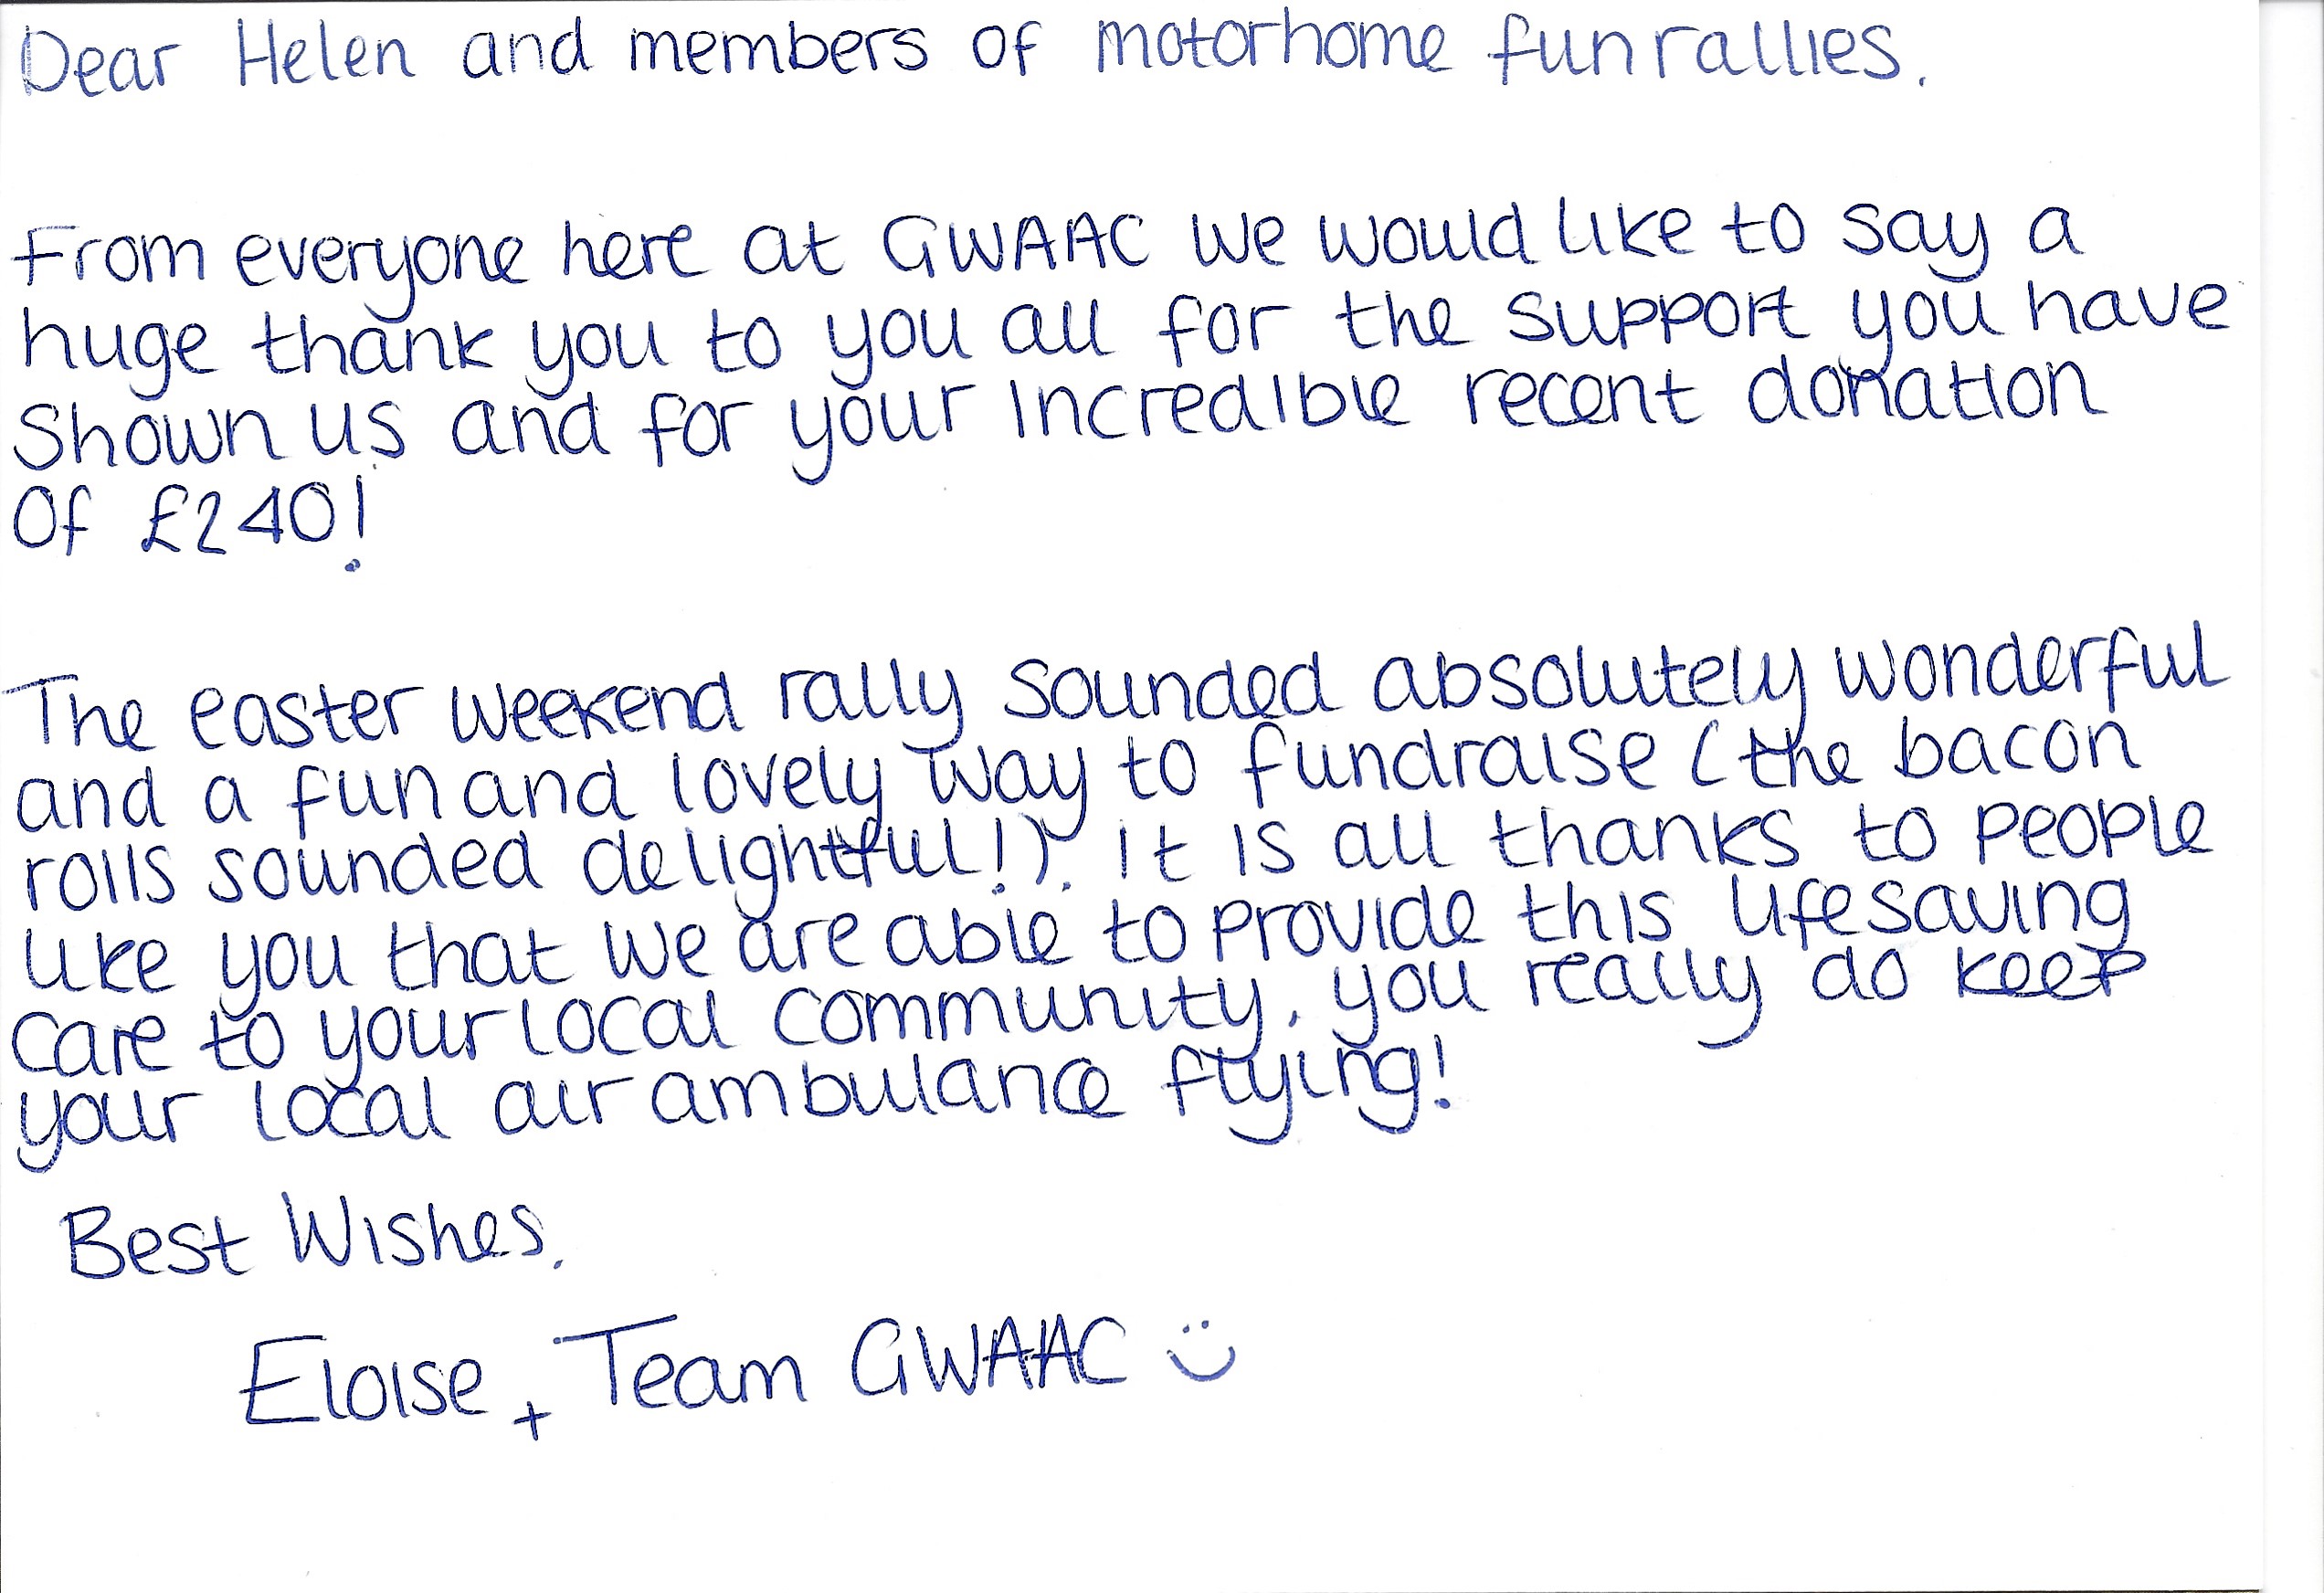 Dear Helen and members of motorhome fun rallies.
From everyone here at GWAAC we would like to say a
huge thank you to you all for the support you have
shown us and for your incredible recent donation
of £240!
The easter weekend rally sounded absolutely wonderful
and a fun and lovely way to fundraise (the bacon
rolls sounded delightful!). It is all thanks to people
like you that we are able to provide this lifesaving
care to your local community. you really do keep
your local air ambulance flying!
Best Wishes.
Eloise + Team GWAAC ☺